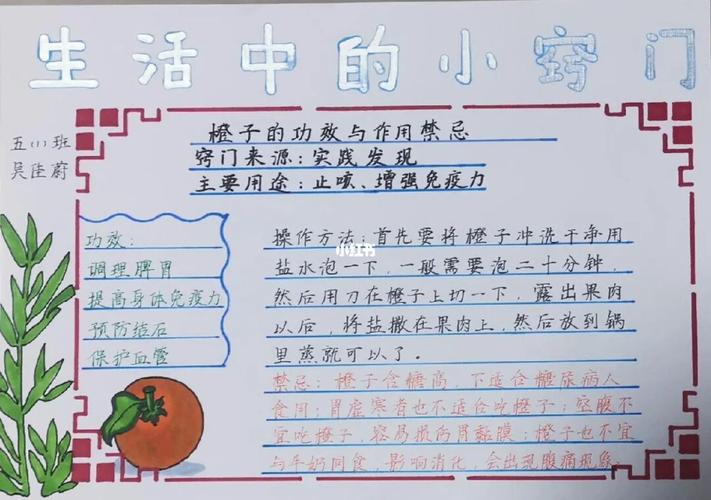 生活中的小窍门
五(1)班
吴佳蔚
橙子的功效与作用禁忌
窍门来源:实践发现
主要用途:止咳、增强免疫力
功效:
调理脾胃
提高身体免疫力
预防结石
保护血管
操作方法:首先要将橙子冲洗干净用
盐水泡一下,一般需要泡二十分钟,
然后用刀在橙子上切一下,露出果肉
以后,将盐撒在果肉上,然后放到锅
里蒸就可以了.
小红书
禁忌:橙子含糖高,下适合糖尿病人
食用;胃虚寒者也不适合吃橙子;空腹不
宜吃橙子,容易损伤胃黏膜;橙子也不宜
与牛奶同食,影响消化,会出现腹痛现象.